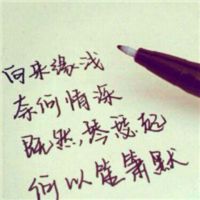 向来缘浅
奈何情深
既然,琴瑟起
何以笙箫默